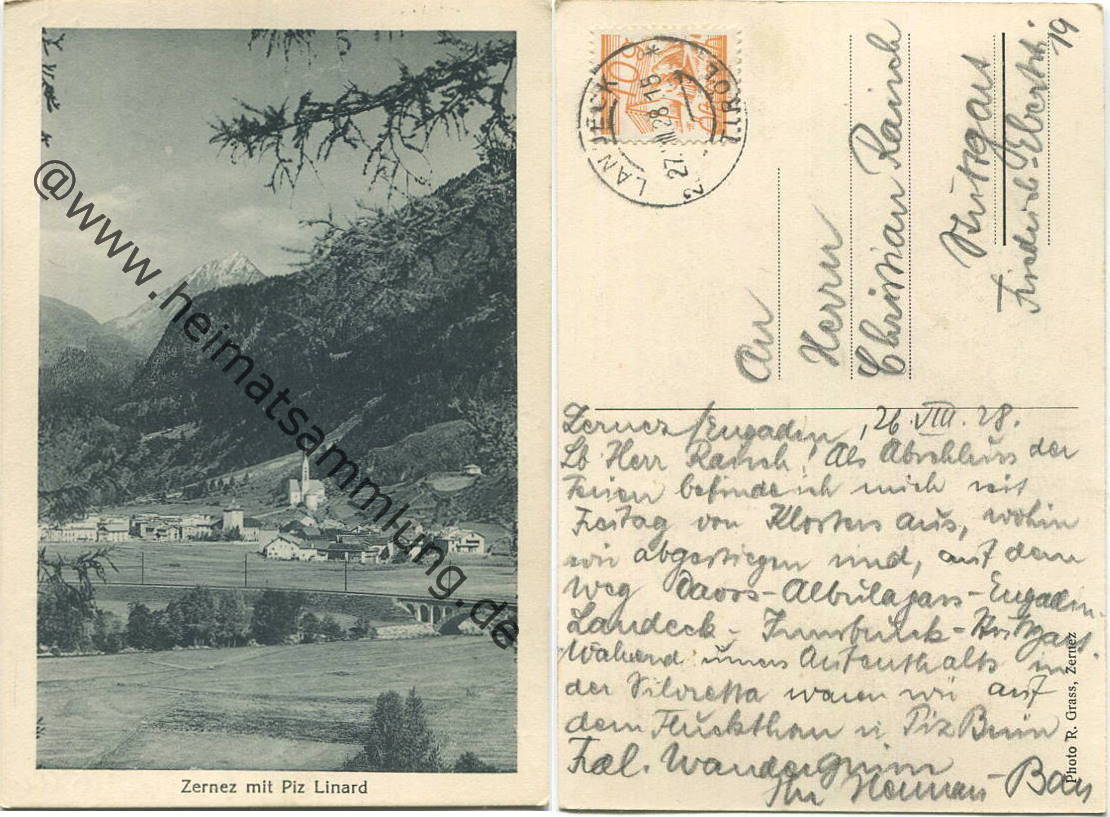 @www.heimatsammlung.de
Zernez mit Piz Linard
2 LANDECK * TIROL
27. VIII 28.15
An
Herrn
Christian Raisch
Stuttgart
Friedrich-Ebertstr.
19
Zernez/Engadin, 26.VIII.28.
Lb Herr Raisch! Als Abschluss der
Ferien befinde ich mich seit
Freitag von Klosters aus, wohin
wir abgestiegen sind, auf dem
Weg Davos-Albulapass-Engadin-
Landeck-Innsbruck-Stuttgart.
Während unseres Aufenthalts in
der Silvretta waren wir auf
dem Fluchthorn u Piz Buin
Frdl. Wandergrüsse
Ihr Hermann
Photo R. Grass, Zernez